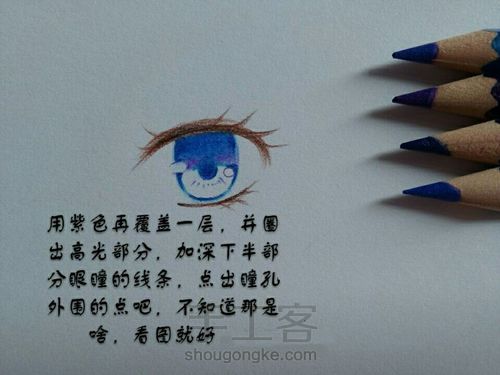 用紫色再覆盖一层，并圈
出高光部分，加深下半部
分眼瞳的线条，点出瞳孔
外围的点吧，不知道那是
啥，看图就好
手工客
shougongke.com